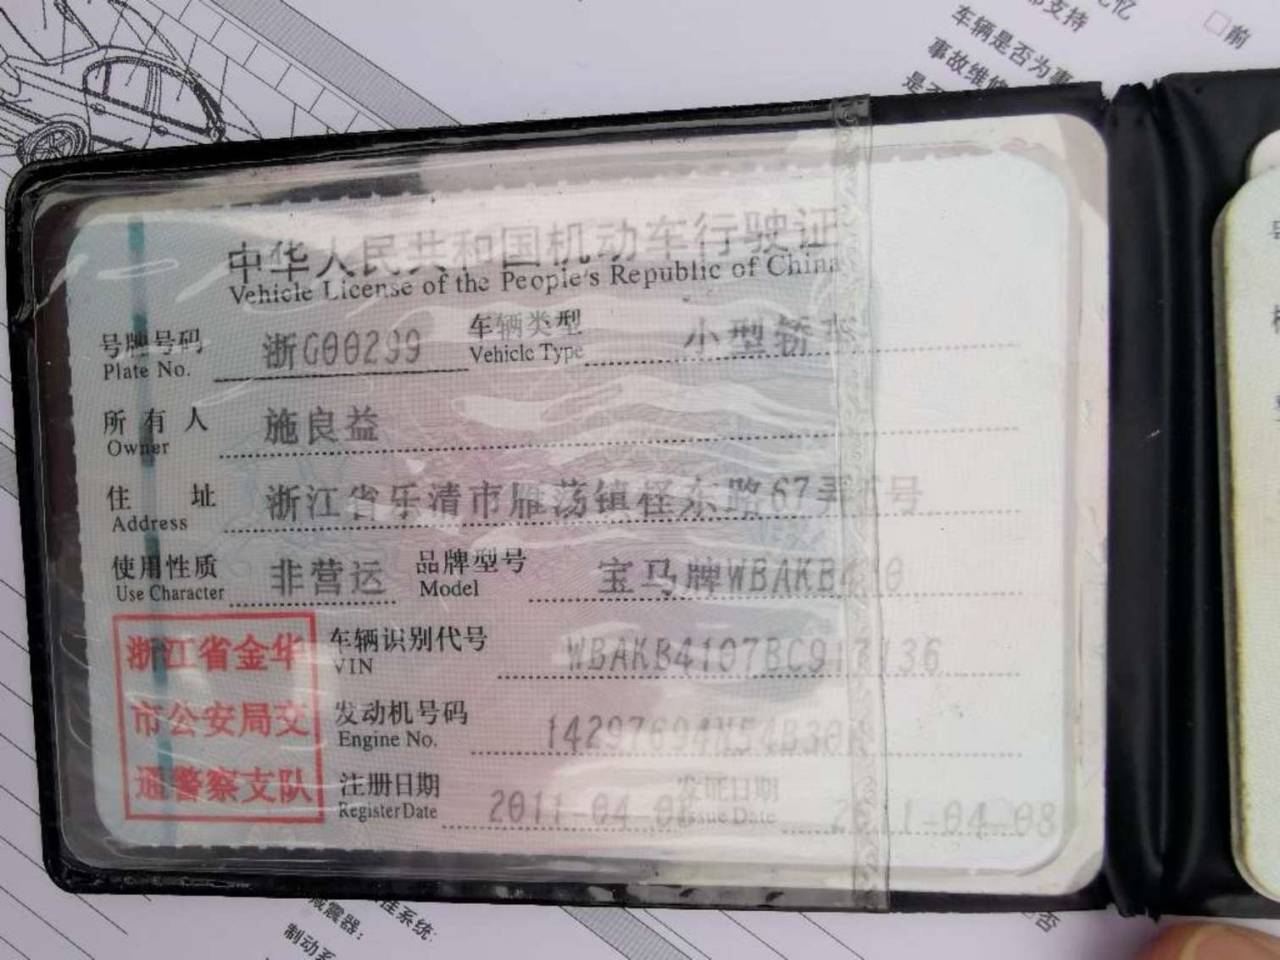 忆
支持
□前
车辆是否为事
事故维修
是否
中华人民共和国机动车行驶证
Vehicle License of the People's Republic of China
号牌号码 浙G00299 车辆类型 小型轿车
Plate No. Vehicle Type
所有人 施良益
Owner
住址 浙江省乐清市雁荡镇怪东路67弄 号
Address
使用性质 非营运 品牌型号 宝马牌WBAKB410
Use Character Model
浙江省金华
市公安局交
通警察支队
车辆识别代号 WBAKB4107BC9 136
VIN
发动机号码 14297694N54B30A
Engine No.
注册日期 2011-04-08 发证日期 2011-04-08
Register Date Issue Date
减震器:
系统:
制动系
否